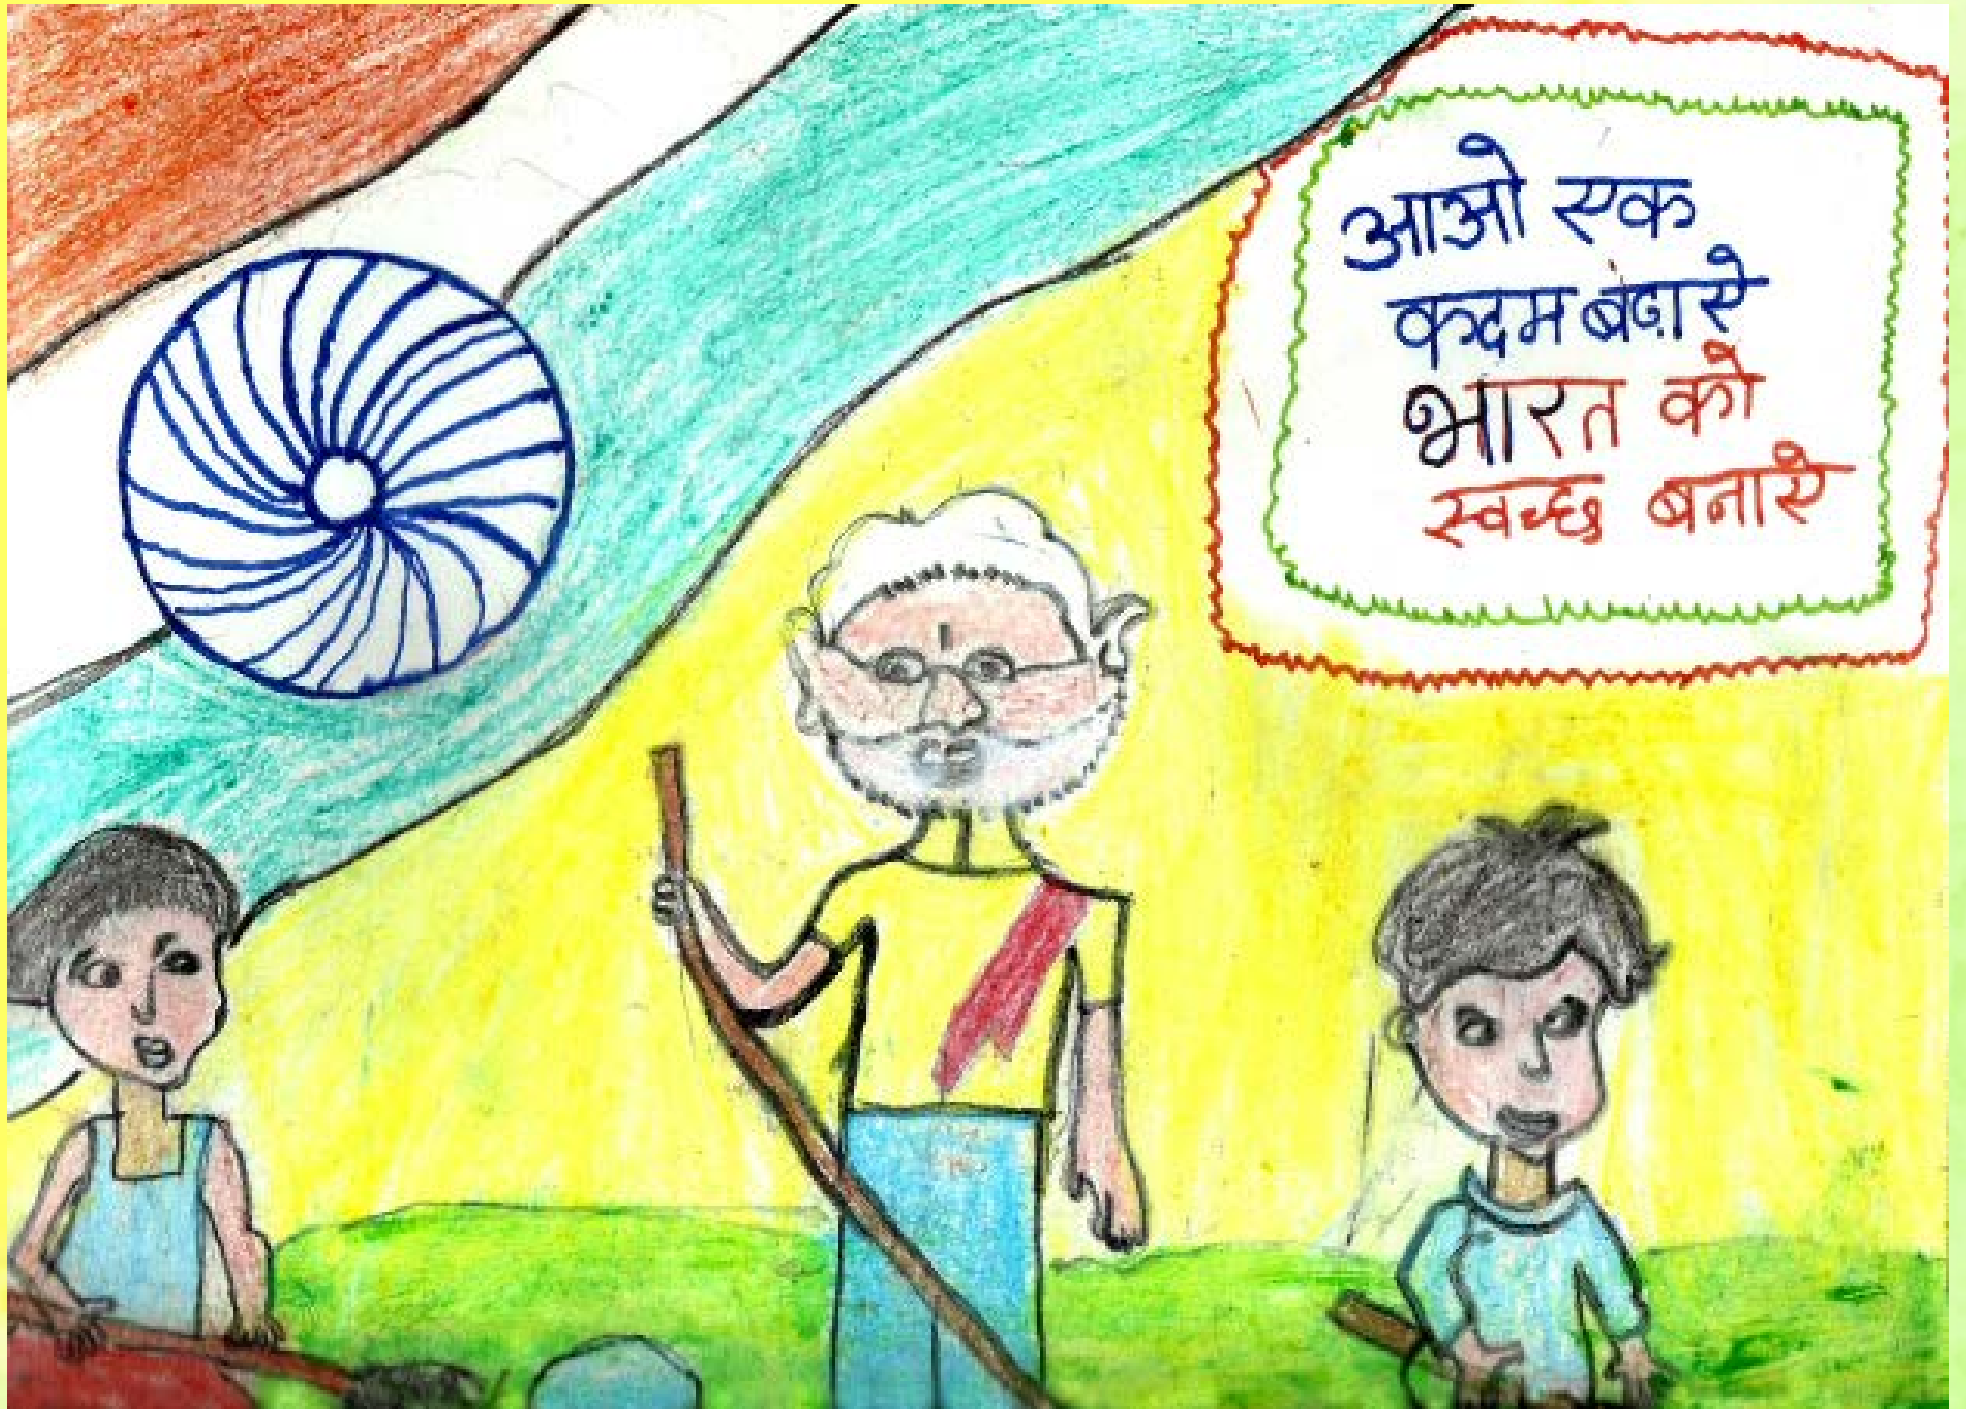 आओ एक
कदम बंढ़ाऐ
भारत को
स्वच्छ बनाऐ